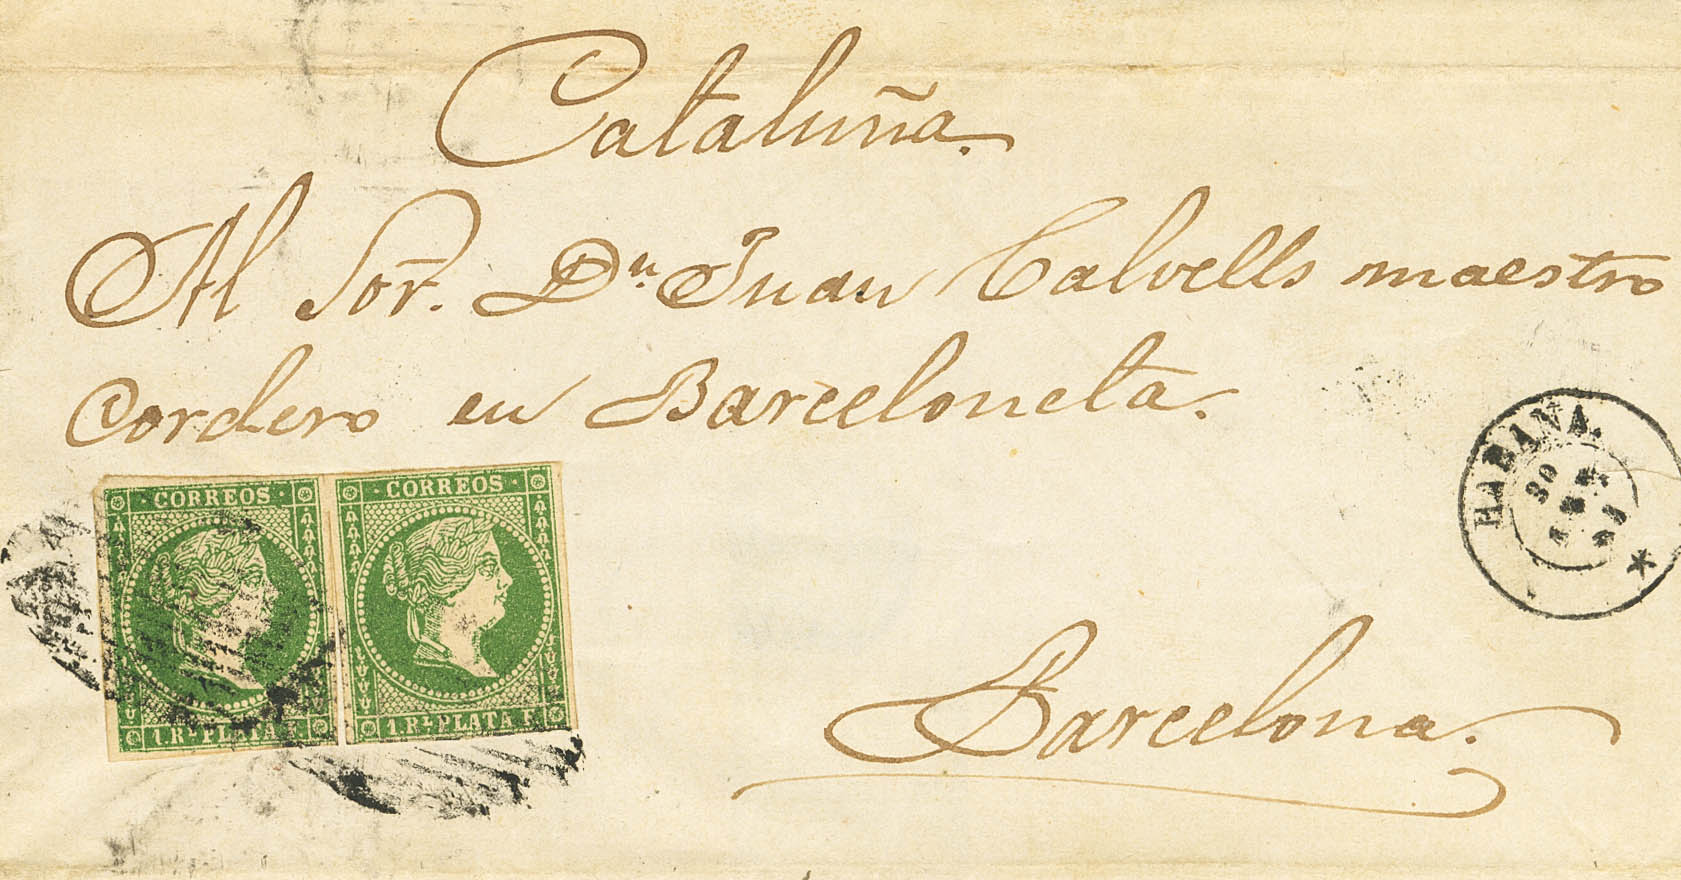 Cataluña.
Al Sor. Dn. Juan Calvells maestro
Cordero en Barceloneta.
CORREOS
1 Rl. PLATA F.
CORREOS
1 Rl. PLATA F.
HABANA.
30
Barcelona.